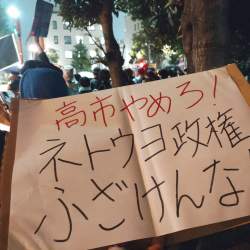 高市やめろ!
ネトウヨ政権
ふざけんな